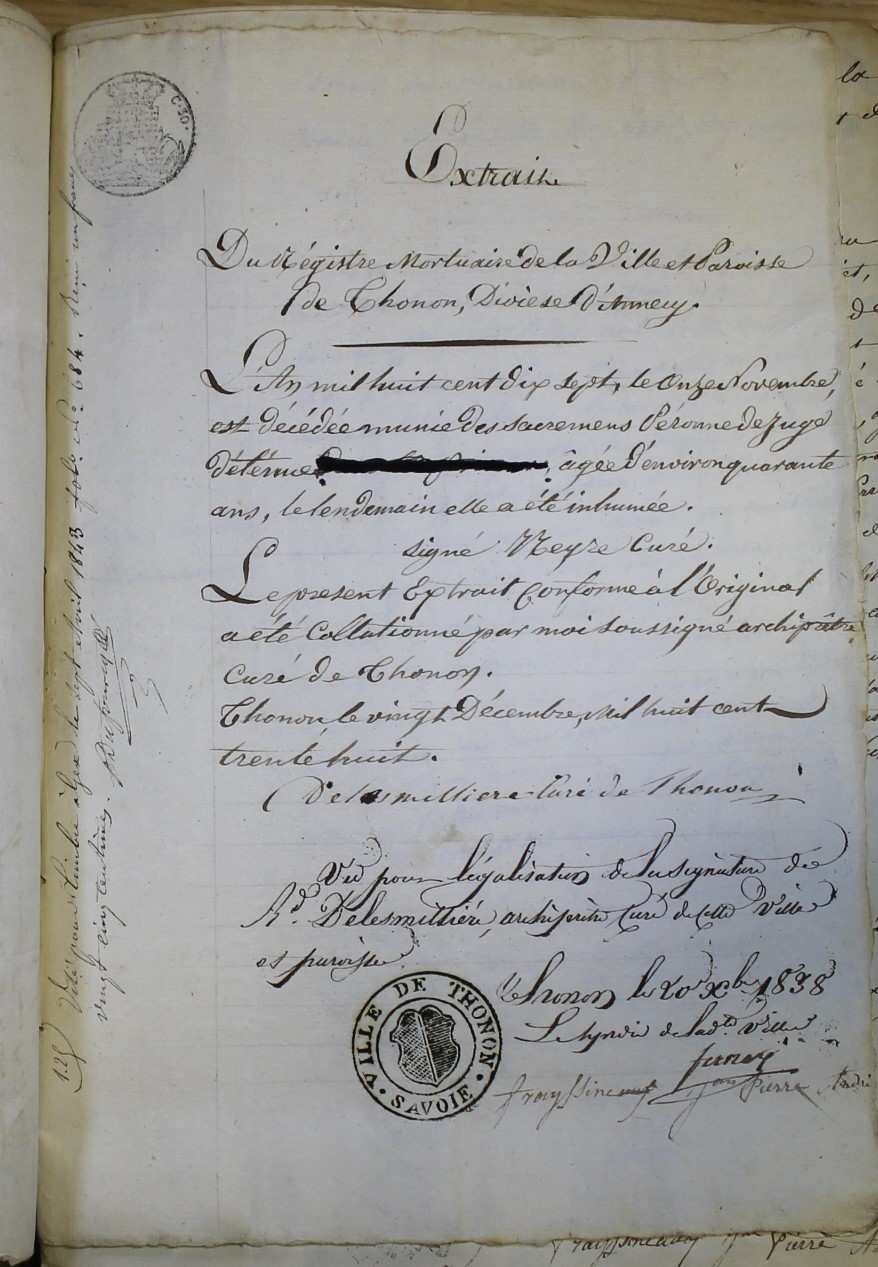 C. 30.
Extrait
Du Régistre Mortuaire de la Ville et Paroisse
de Thonon, Diocèse d'Annecy.
L'An mil huit cent dix sept, le onze Novembre,
est décédée munie des sacremens Péronne de Juge
âgée d'environ quarante
ans, le lendemain elle a été inhumée.
signé Neyre Curé.
Le présent Extrait conforme à l'Original
a été Collationné par moi soussigné archiprêtre
Curé de Thonon.
Thonon le vingt Décembre, mil huit cent
trente huit.
Delesmilliere Curé de Thonon
Vu pour légalisation de la signature de
Rd. Delesmilliére, archiprêtre Curé de cette Ville
et paroisse
Thonon le 20 Xbre 1838
Le Syndic de ladte Ville
Frayssineau Pierre André
VILLE DE THONON
SAVOIE
1.25 Visé pour timbre à Gex le sept Avril 1843 fol. No. 684. Reçu un franc
vingt cinq centimes.
Pierre